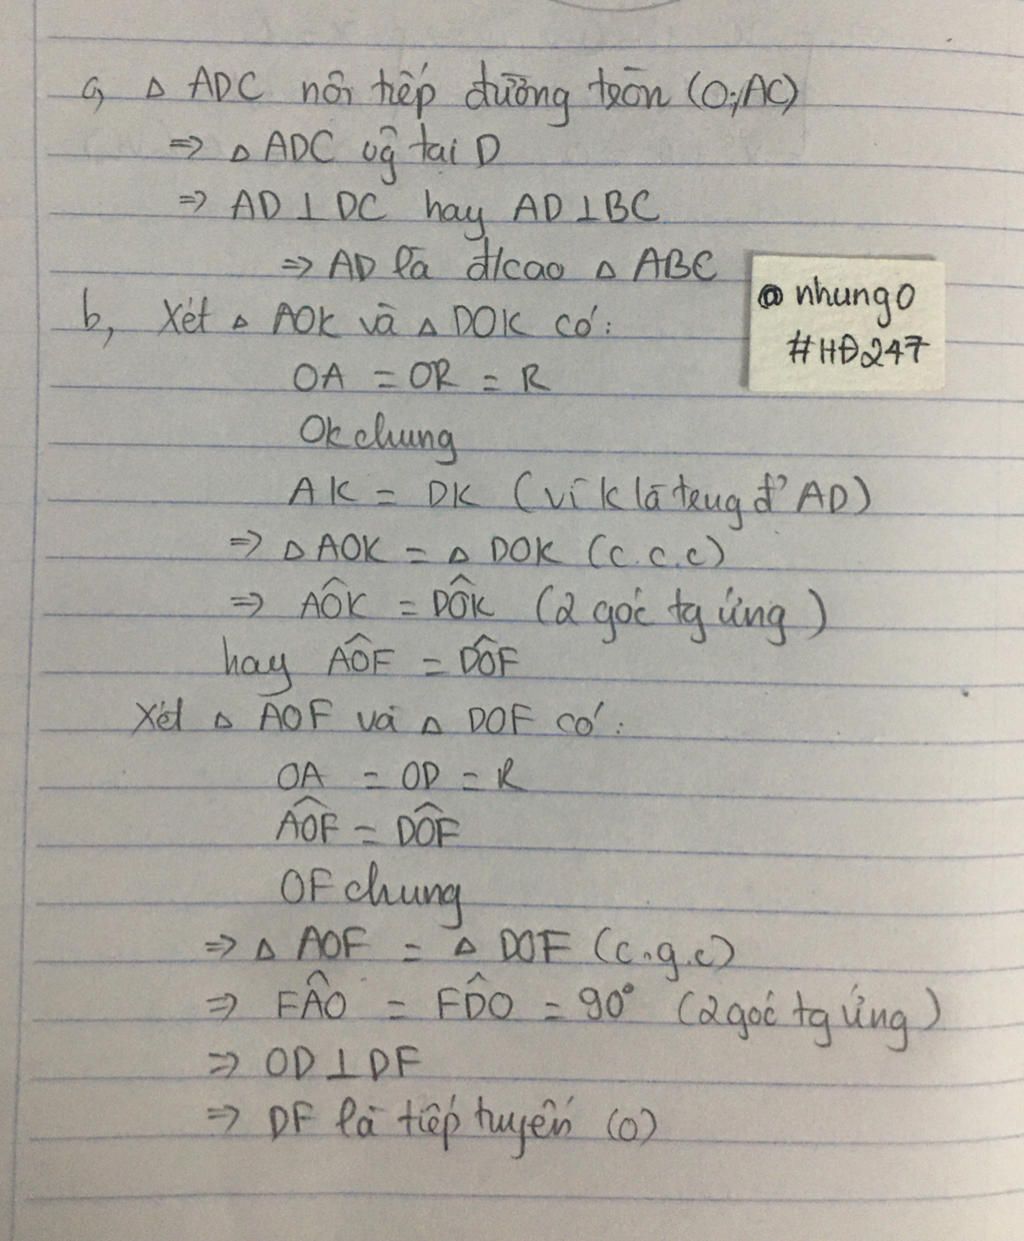 a, Δ ADC nội tiếp đường tròn (O;AC)
=> Δ ADC vg tại D
=> AD ⊥ DC hay AD ⊥ BC
=> AD là đ/cao Δ ABC
@nhung0
#HĐ247
b, Xét Δ AOK và Δ DOK có:
OA = OR = R
OK chung
AK = DK (vì K là trung đ' AD)
=> Δ AOK = Δ DOK (c.c.c)
=> AÔK = DÔK (2 góc tg ứng)
hay AÔF = DÔF
Xét Δ AOF và Δ DOF có:
OA = OD = R
AÔF = DÔF
OF chung
=> Δ AOF = Δ DOF (c.g.c)
=> FÂO = FD̂O = 90° (2 góc tg ứng)
=> OD ⊥ DF
=> DF là tiếp tuyến (O)